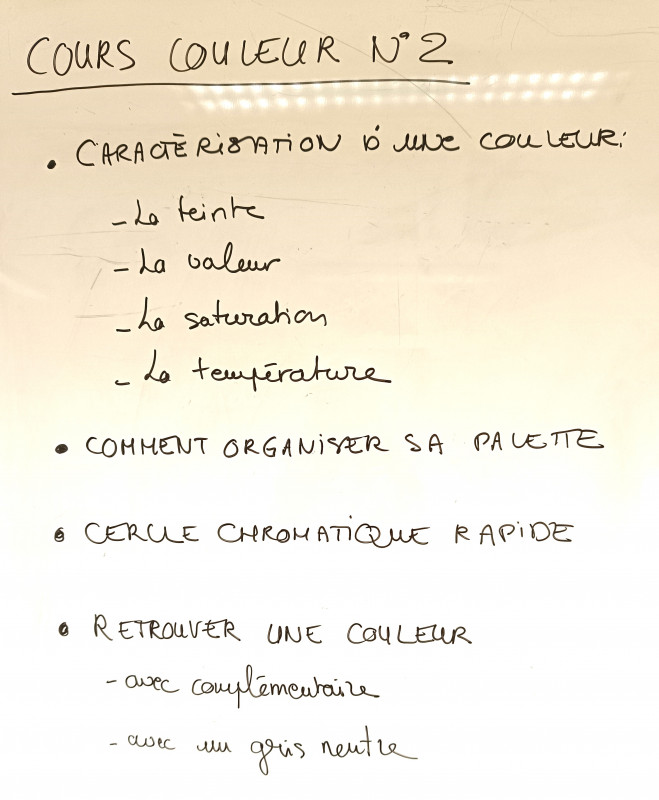 COURS COULEUR N°2
• CARACTÈRISATION D'UNE COULEUR:
- La teinte
- La valeur
- La saturation
- La température
• COMMENT ORGANISER SA PALETTE
• CERCLE CHROMATIQUE RAPIDE
• RETROUVER UNE COULEUR
- avec complémentaire
- avec un gris neutre